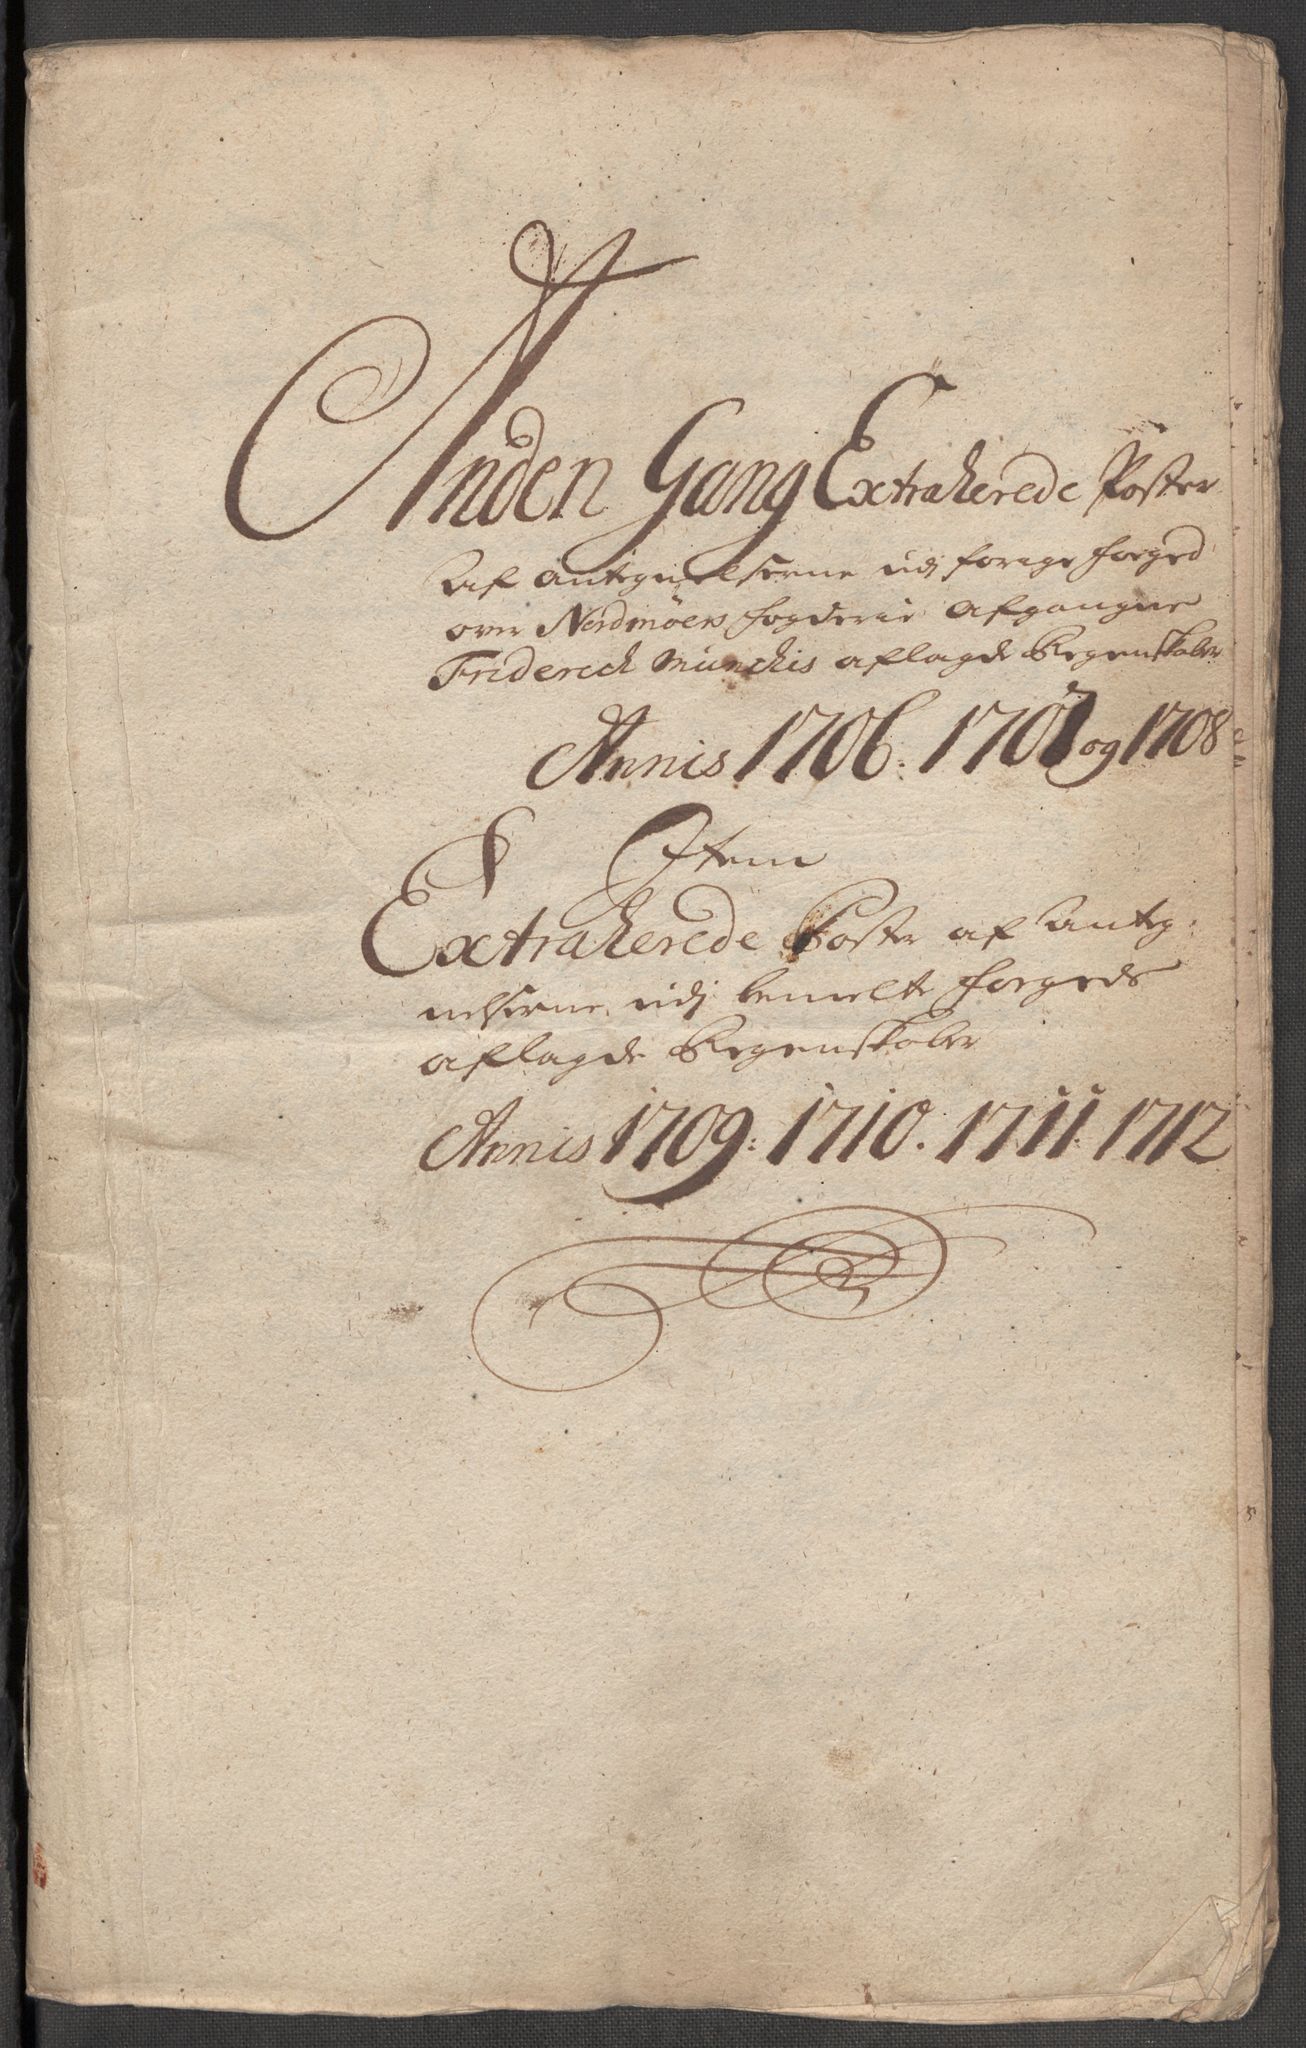 Anden Gang Extraherede Poster
af antegnelserne udj forrige foeged
over Nordmöers fogderie afgangne
Friderich Munchis aflagde Regenskaber
Annis 1706. 1707 og 1708
Item
Extraherede Poster af Anteg-
nelserne, udj bemelte foegeds
aflagde Regenskaber
Annis 1709. 1710. 1711. 1712